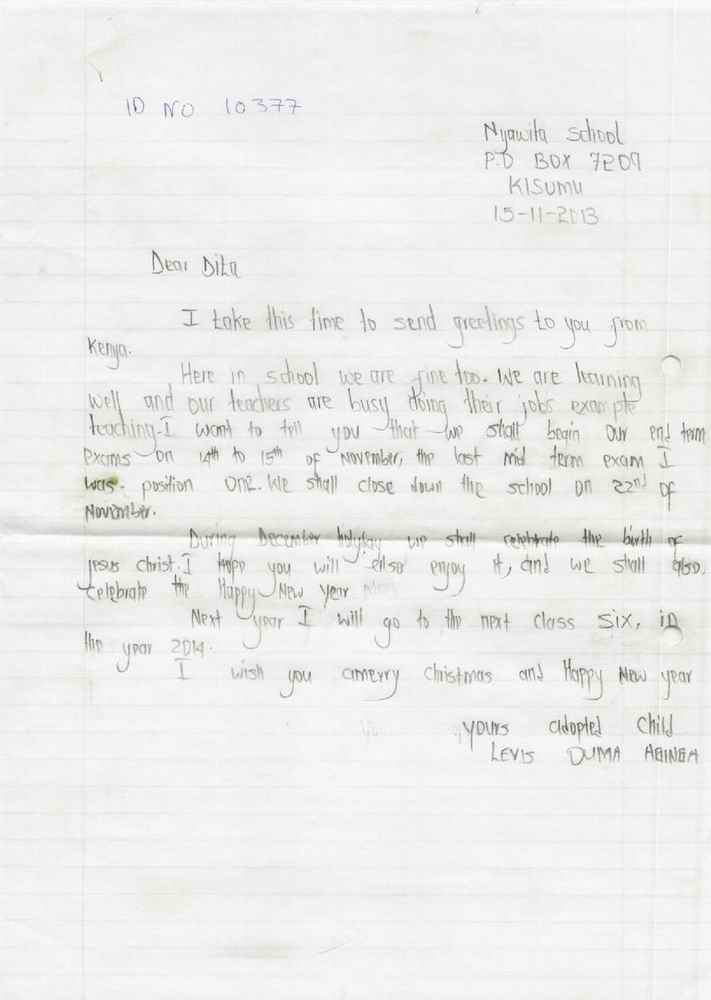 ID NO 10377
Nyawita School
P.O BOX 7209
KISUMU
15-11-2013
Dear Dita
I take this time to send greetings to you from
Kenya.
Here in school we are fine too. We are learning
well and our teachers are busy doing their jobs example
teaching. I want to tell you that we shall begin our end term
exams on 14th to 15th of November, the last mid term exam I
was position one. We shall close down the school on 22nd of
November.
During December holyday we shall celebrate the birth of
jesus christ. I hope you will also enjoy it, and we shall also
celebrate the Happy New Year
Next year I will go to the next class six, in
the year 2014.
I wish you amerry christmas and Happy New year
yours adopted child
LEVIS DUMA